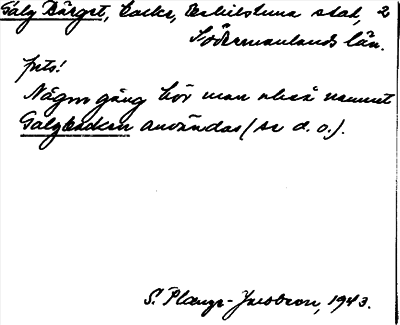 Galg Bärget, backe, Eskilstuna stad, 2
Södermanlands län.
forts!
Någon gång hör man också namnet
Galgbacken användas (se d. o.).
S. Plænge-Jacobson, 1943.